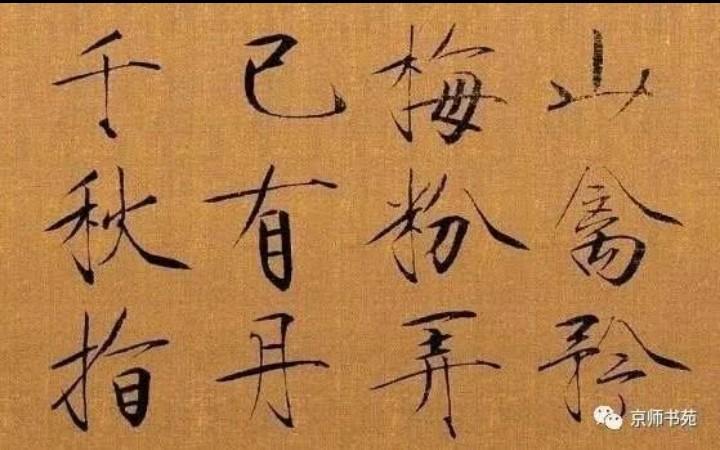 山禽矜
梅粉弄
已有丹
千秋指
京师书苑